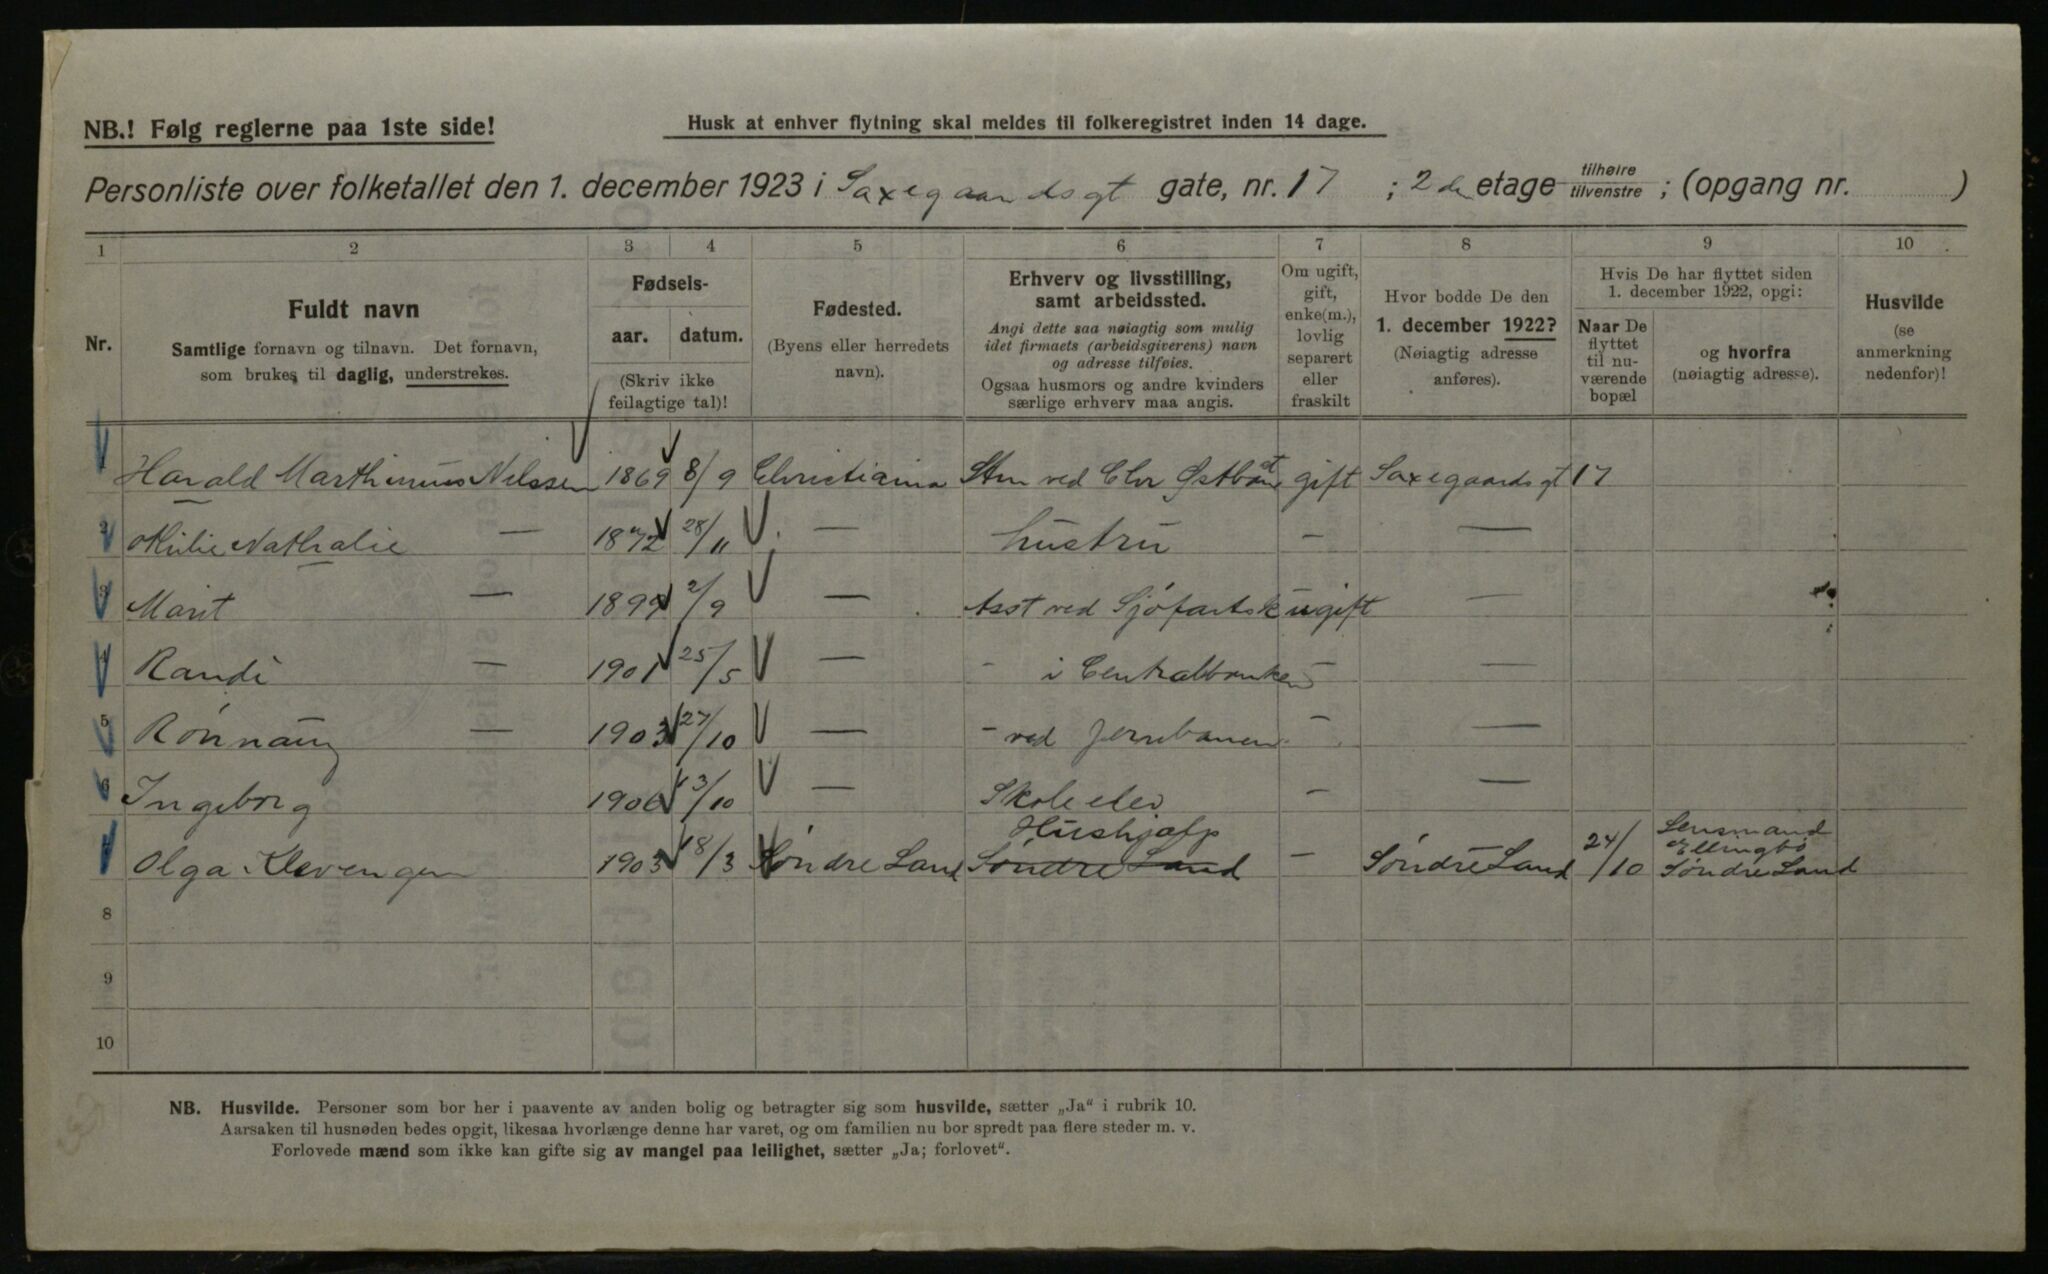 NB.! Følg reglerne paa 1ste side!
Husk at enhver flytning skal meldes til folkeregistret inden 14 dage.
Personliste over folketallet den 1. december 1923 i Saxegaardsgt gate, nr. 17 ; 2den etage tilhøire tilvenstre ; (opgang nr. )
1 2 3 4 5 6 7 8 9 10
Nr.
Fuldt navn
Samtlige fornavn og tilnavn. Det fornavn,
som brukes til daglig, understrekes.
Fødsels-
aar. datum.
(Skriv ikke
feilagtige tal)!
Fødested.
(Byens eller herredets
navn).
Erhverv og livsstilling,
samt arbeidssted.
Angi dette saa nøiagtig som mulig
idet firmaets (arbeidsgiverens) navn
og adresse tilføies.
Ogsaa husmors og andre kvinders
særlige erhverv maa angis.
Om ugift,
gift,
enke(m.),
lovlig
separert
eller
fraskilt
Hvor bodde De den
1. december 1922?
(Nøiagtig adresse
anføres).
Hvis De har flyttet siden
1. december 1922, opgi:
Naar De
flyttet
til nu-
værende
bopæl
og hvorfra
(nøiagtig adresse).
Husvilde
(se
anmerkning
nedenfor)!
1 Harald Marthinius Nilssen 1869 8/9 Christiania ved Chr Østbane gift Saxegaardsgt 17
2 Milie Nathalie — 1872 28/11 — hustru — —
3 Marit — 1899 2/9 — Asst ved Sjøfartsk ugift —
4 Randi — 1901 25/5 — - i Centralbanken — —
5 Rønnaug — 1903 27/10 — - ved Jernbanen — —
6 Ingeborg 1906 13/10 — Skoleelev — —
7 Olga Klevengen 1903 18/3 Søndre Land Hushjælp Søndre Land — Søndre Land 24/10 Lensmand Ellingbø Søndre Land
8
9
10
NB. Husvilde. Personer som bor her i paavente av anden bolig og betragter sig som husvilde, sætter „Ja“ i rubrik 10.
Aarsaken til husnøden bedes opgit, likesaa hvorlænge denne har varet, og om familien nu bor spredt paa flere steder m. v.
Forlovede mænd som ikke kan gifte sig av mangel paa leilighet, sætter „Ja; forlovet“.